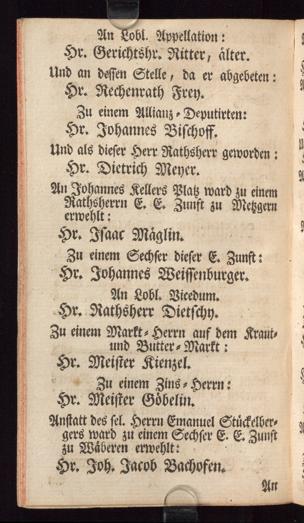 An Lobl. Appellation:
Hr. Gerichtshr. Ritter, älter.
Und an dessen Stelle, da er abgebeten:
Hr. Rechenrath Frey.
Zu einem Allianz-Deputirten:
Hr. Johannes Bischoff.
Und als dieser Herr Rathsherr geworden:
Hr. Dietrich Meyer.
An Johannes Kellers Platz ward zu einem
Rathsherrn E. E. Zunft zu Metzgern
erwehlt:
Hr. Isaac Mäglin.
Zu einem Sechser dieser E. Zunft:
Hr. Johannes Weissenburger.
An Lobl. Vicedum.
Hr. Rathsherr Dietschy.
Zu einem Markt-Herrn auf dem Kraut-
und Butter-Markt:
Hr. Meister Kienzel.
Zu einem Zins-Herrn:
Hr. Meister Göbelin.
Anstatt des sel. Herrn Emanuel Stückelber-
gers ward zu einem Sechser E. E. Zunft
zu Wäberen erwehlt:
Hr. Joh. Jacob Bachofen.
An